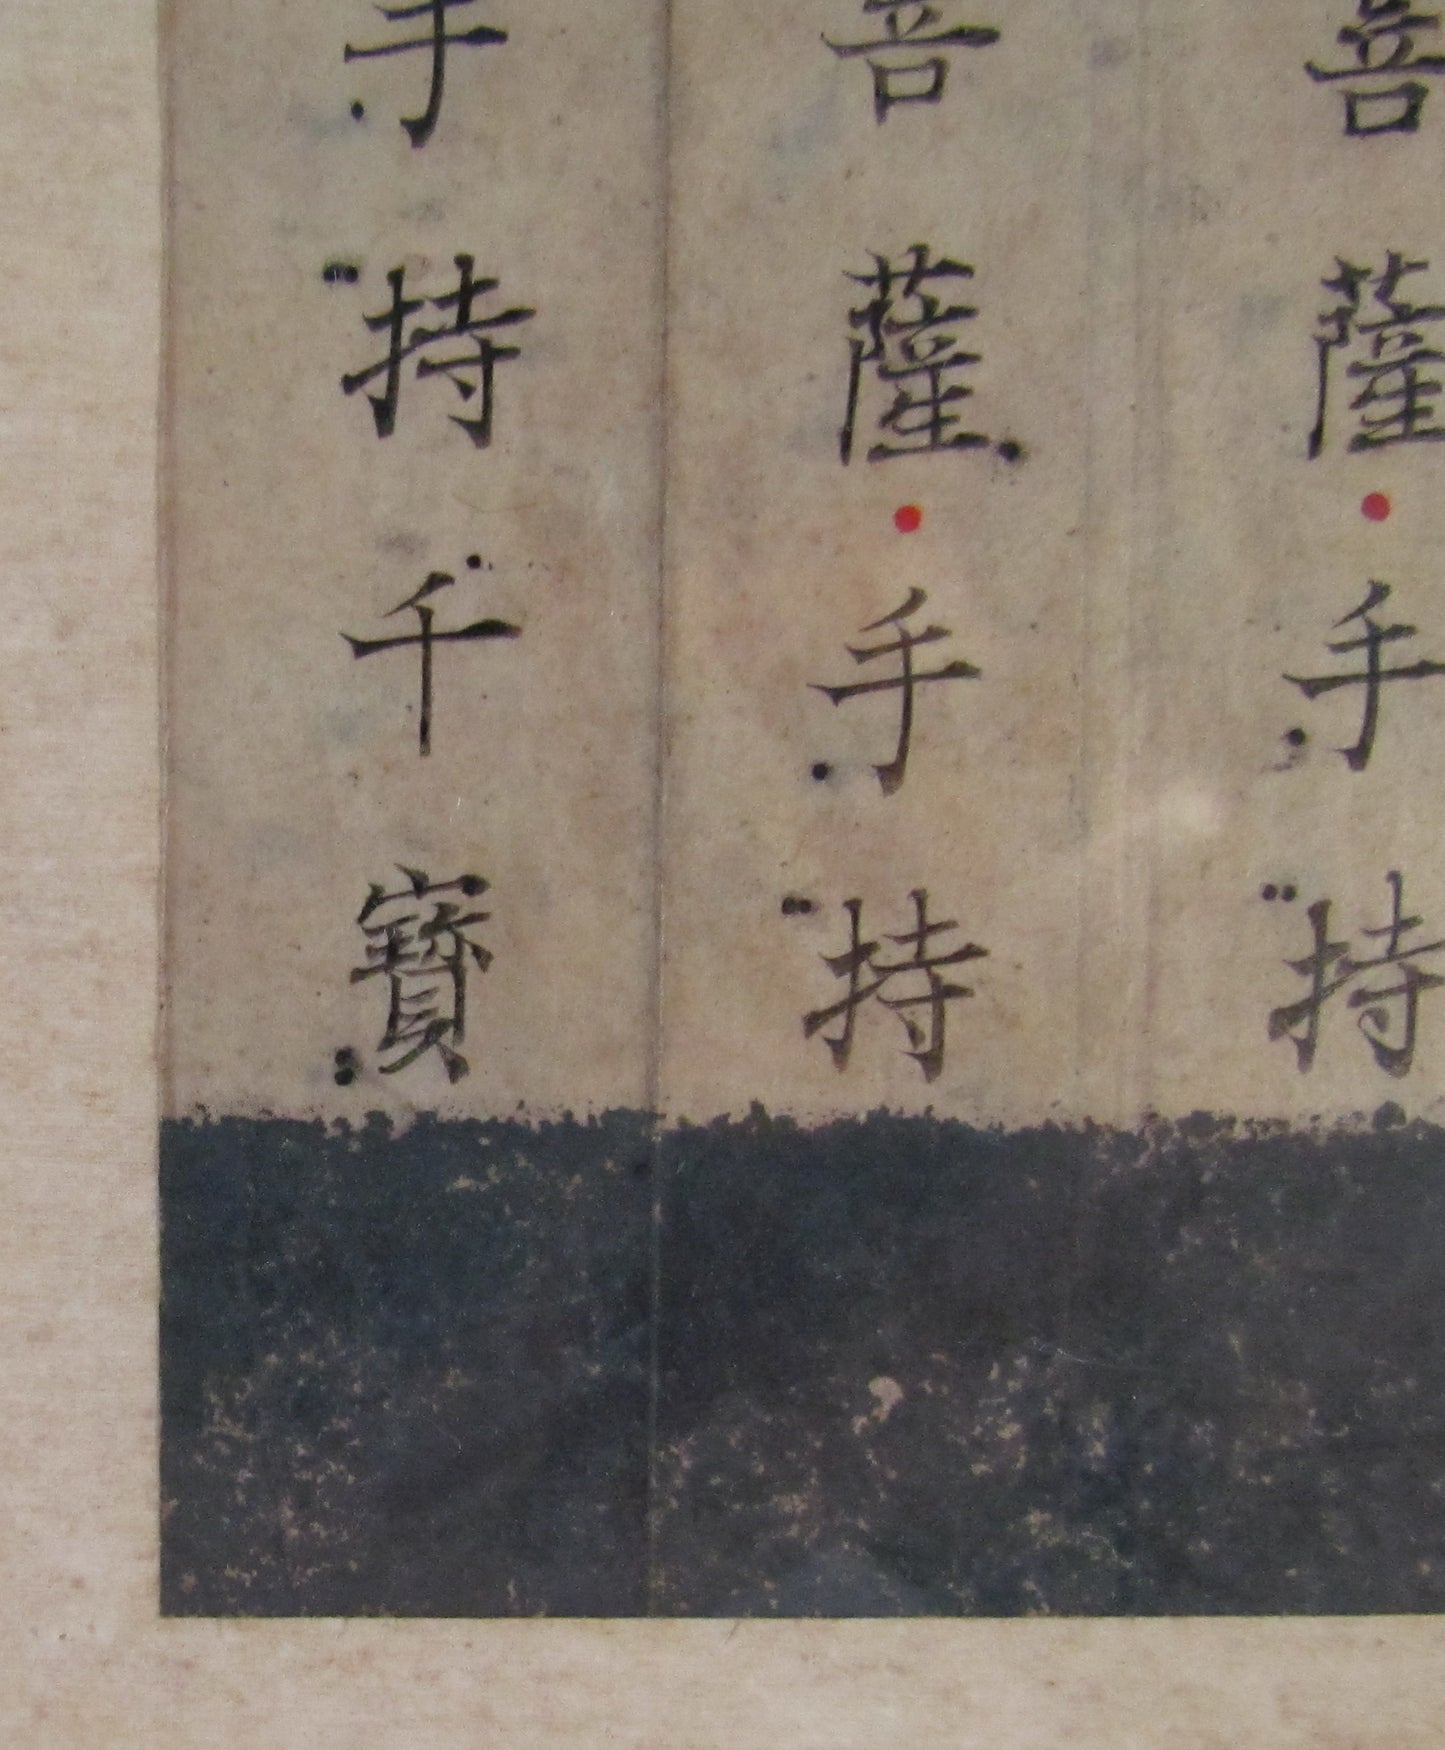 菩薩手持
菩薩手持
手持千寶